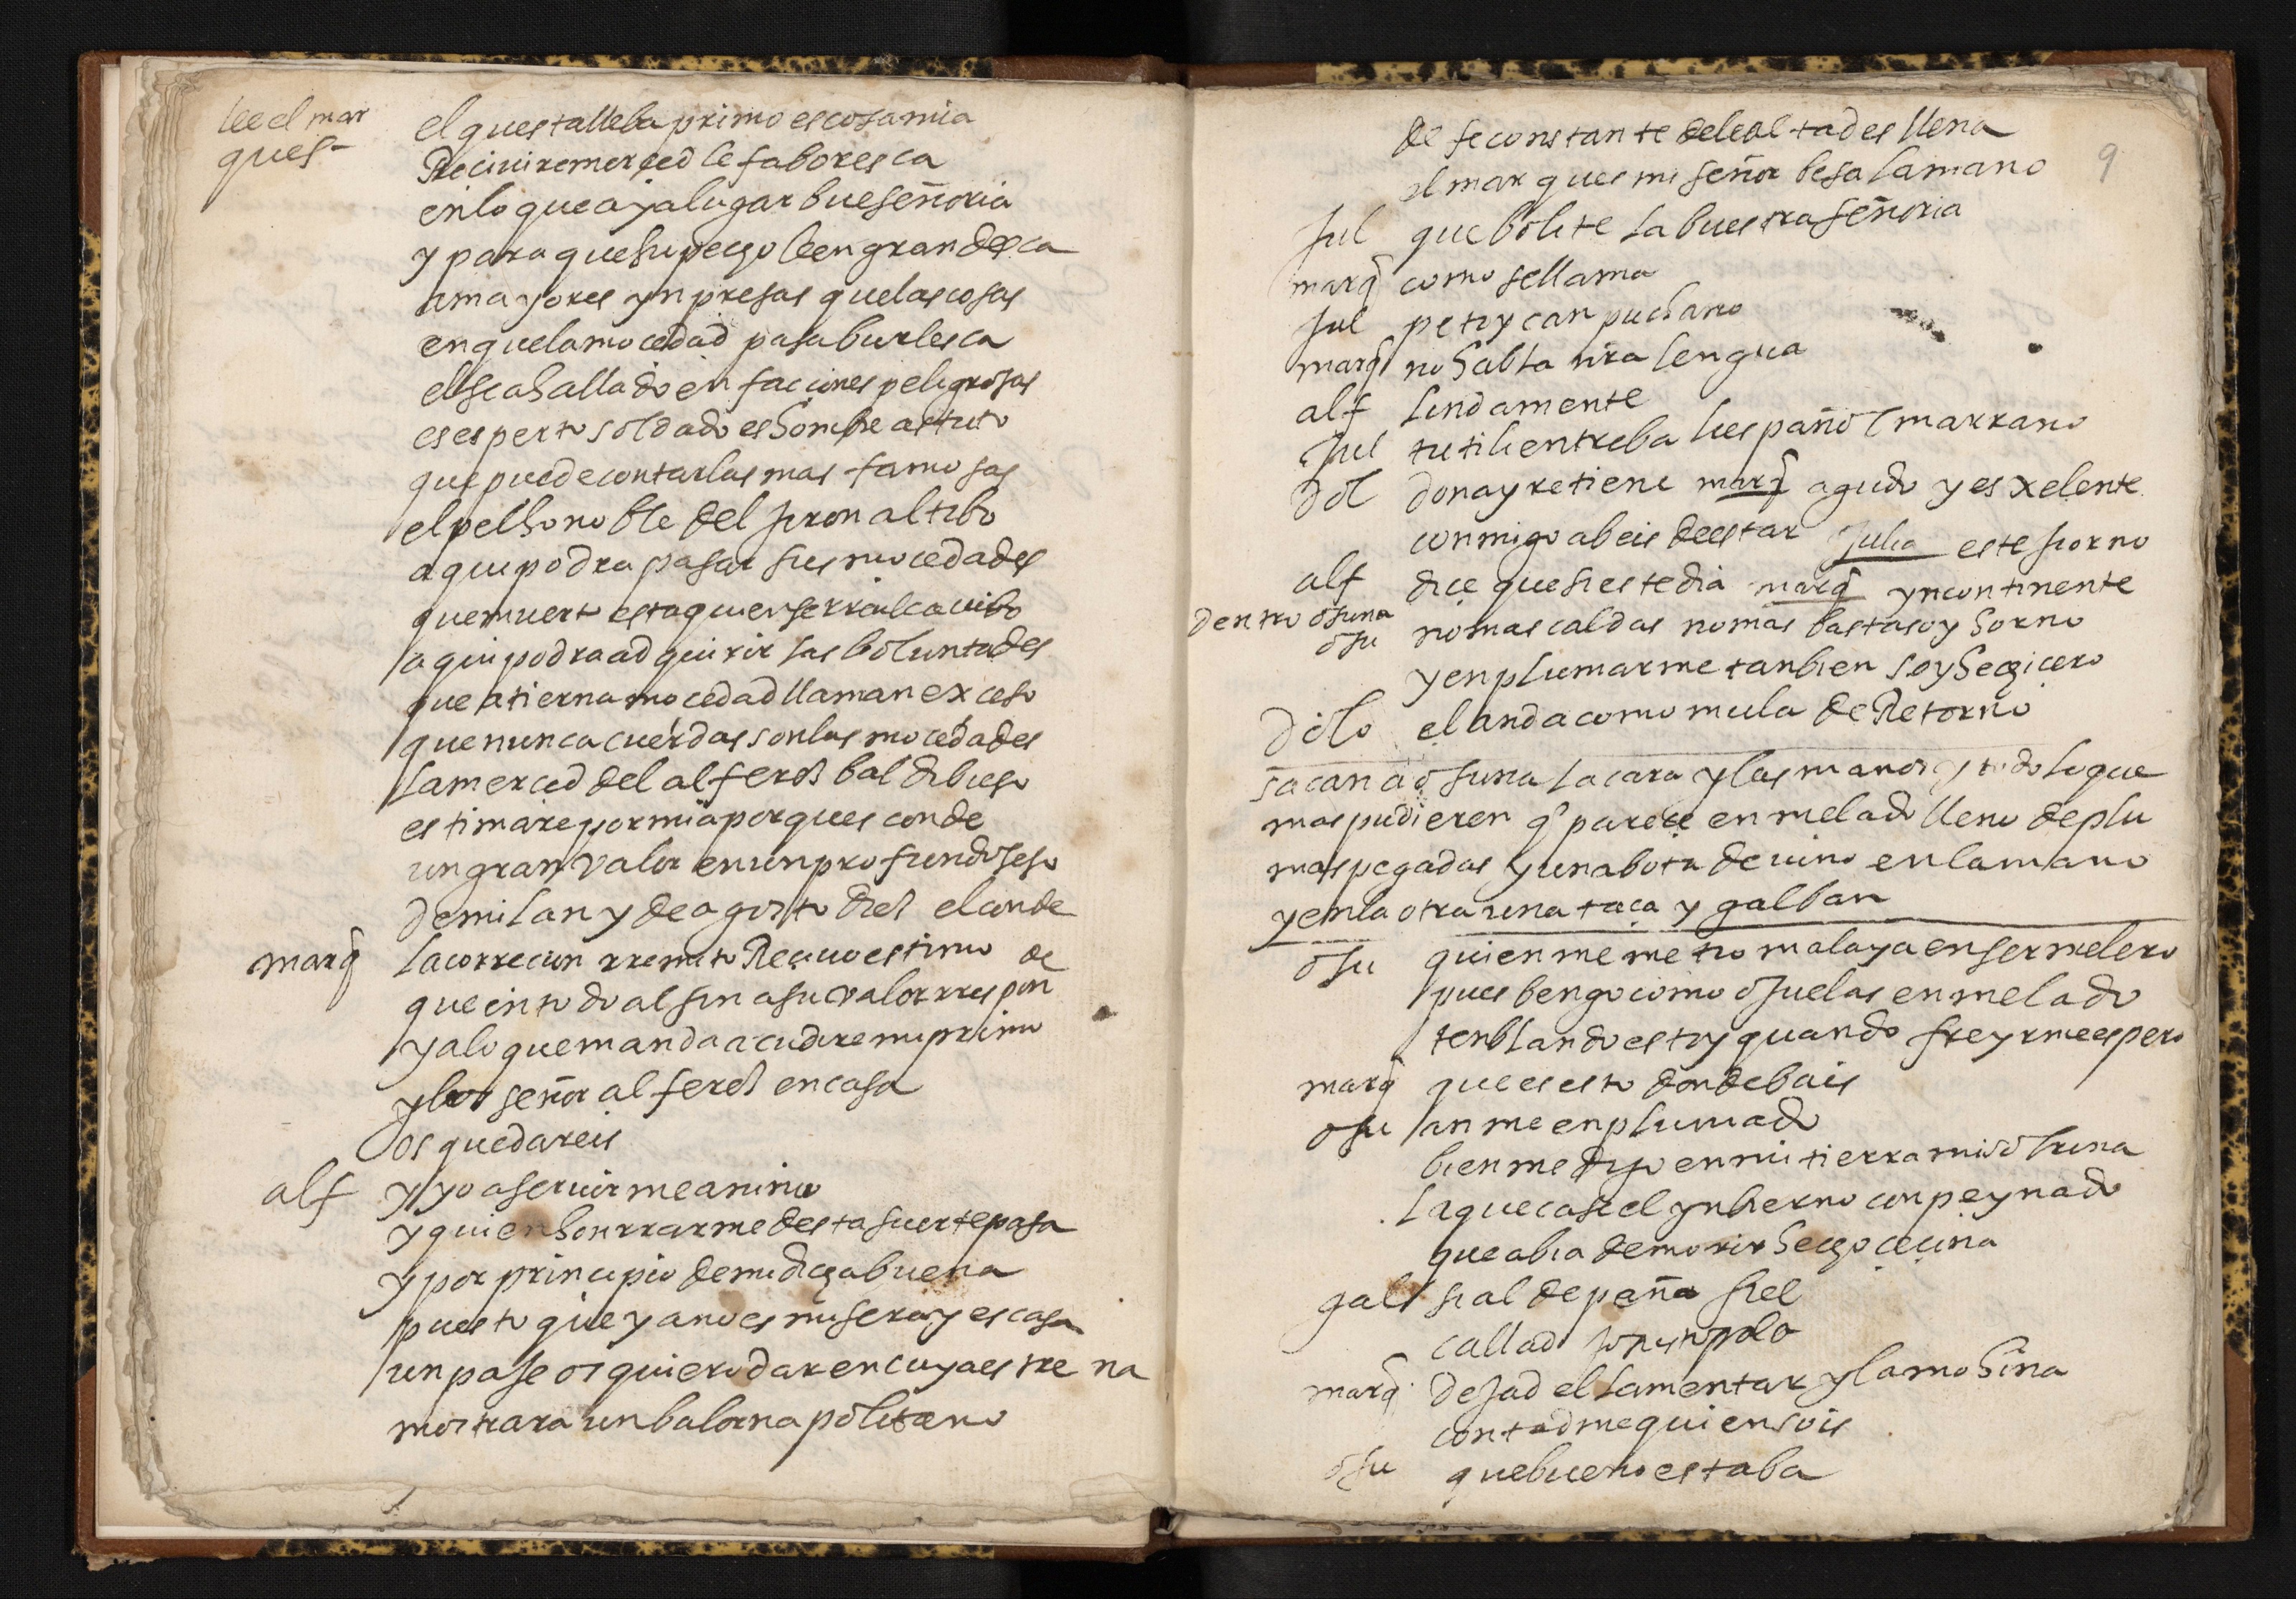 lee el mar
ques-
el questa lleba primo es cosa mia
Reciuire merçed le faboresca
en lo que aya lugar bueseñoria
y para que su pecho le engrandesca
a mayores ynpresas que las cosas
en que la mocedad pasa burlesca
el se a hallado en facciones peligrosas
es esperto soldado es honbre astuto
que puede contar las mas famosas
el pelho noble del jiron altibo
aqui podra pasar sus mocedades
que muerto esta quien se
aqui podra adquirir las boluntades
que a tierna mocedad llaman exceso
que nunca cuerdas son las mocedades
la merced del alferes baldibieso
estimare por mia porques conde
un gran valor en un profundo seso
de milan y de agosto dies el conde
marq la correcion rremito Reciuo estimo
que en todo al fin a su valor rresponde
y a lo que manda acudire mi primo
y bos señor alferes en casa
os quedareis
alf y yo a seruirme animo
y quien honrrarme desta suerte pasa
y por principio de mi dicha buena
puesto que ya no es misera y escasa
un paje os quiero dar en cuya estrena
mostrara un balor napolitano
9
de fe constante de lealtad es llena
el marques mi señor besa la mano
Jul que bolite la buestra señoria
marq como se llama
Jul petry canpuchano
marq no habla nra lengua
alf lindamente
Jul tu tili entreba lespañol marrano
dol donayre tiene marq agudo y es xelente
conmigo abeis de estar Julio este jiorno
alf dice que si este dia marq yncontinente
dentro osuna
osu no mas caldas no mas basta soy horno
y enplumarme tanbien soy hechicero
dolo el anda como mula de Retorno
sacan a osuna la cara y las manos y todo lo que
mas pudieren q parece enmelado lleno de plu
mas pegadas y una bota de uino en la mano
y en la otra una taça y galban
osu quien me metio malaya en ser melero
pues bengo como ojuelas enmelado
tenblando estoy quando freyrme espero
marq que es esto donde bais
osu an me enplumado
bien me dijo en mi tierra mi
la que case el ynbierno con peynado
que abia de morir hecho çeçina
gal si al de peña fiel
callad
marq dejad el lamentar y la mohina
contadme quien sois
osu que bueno estaba